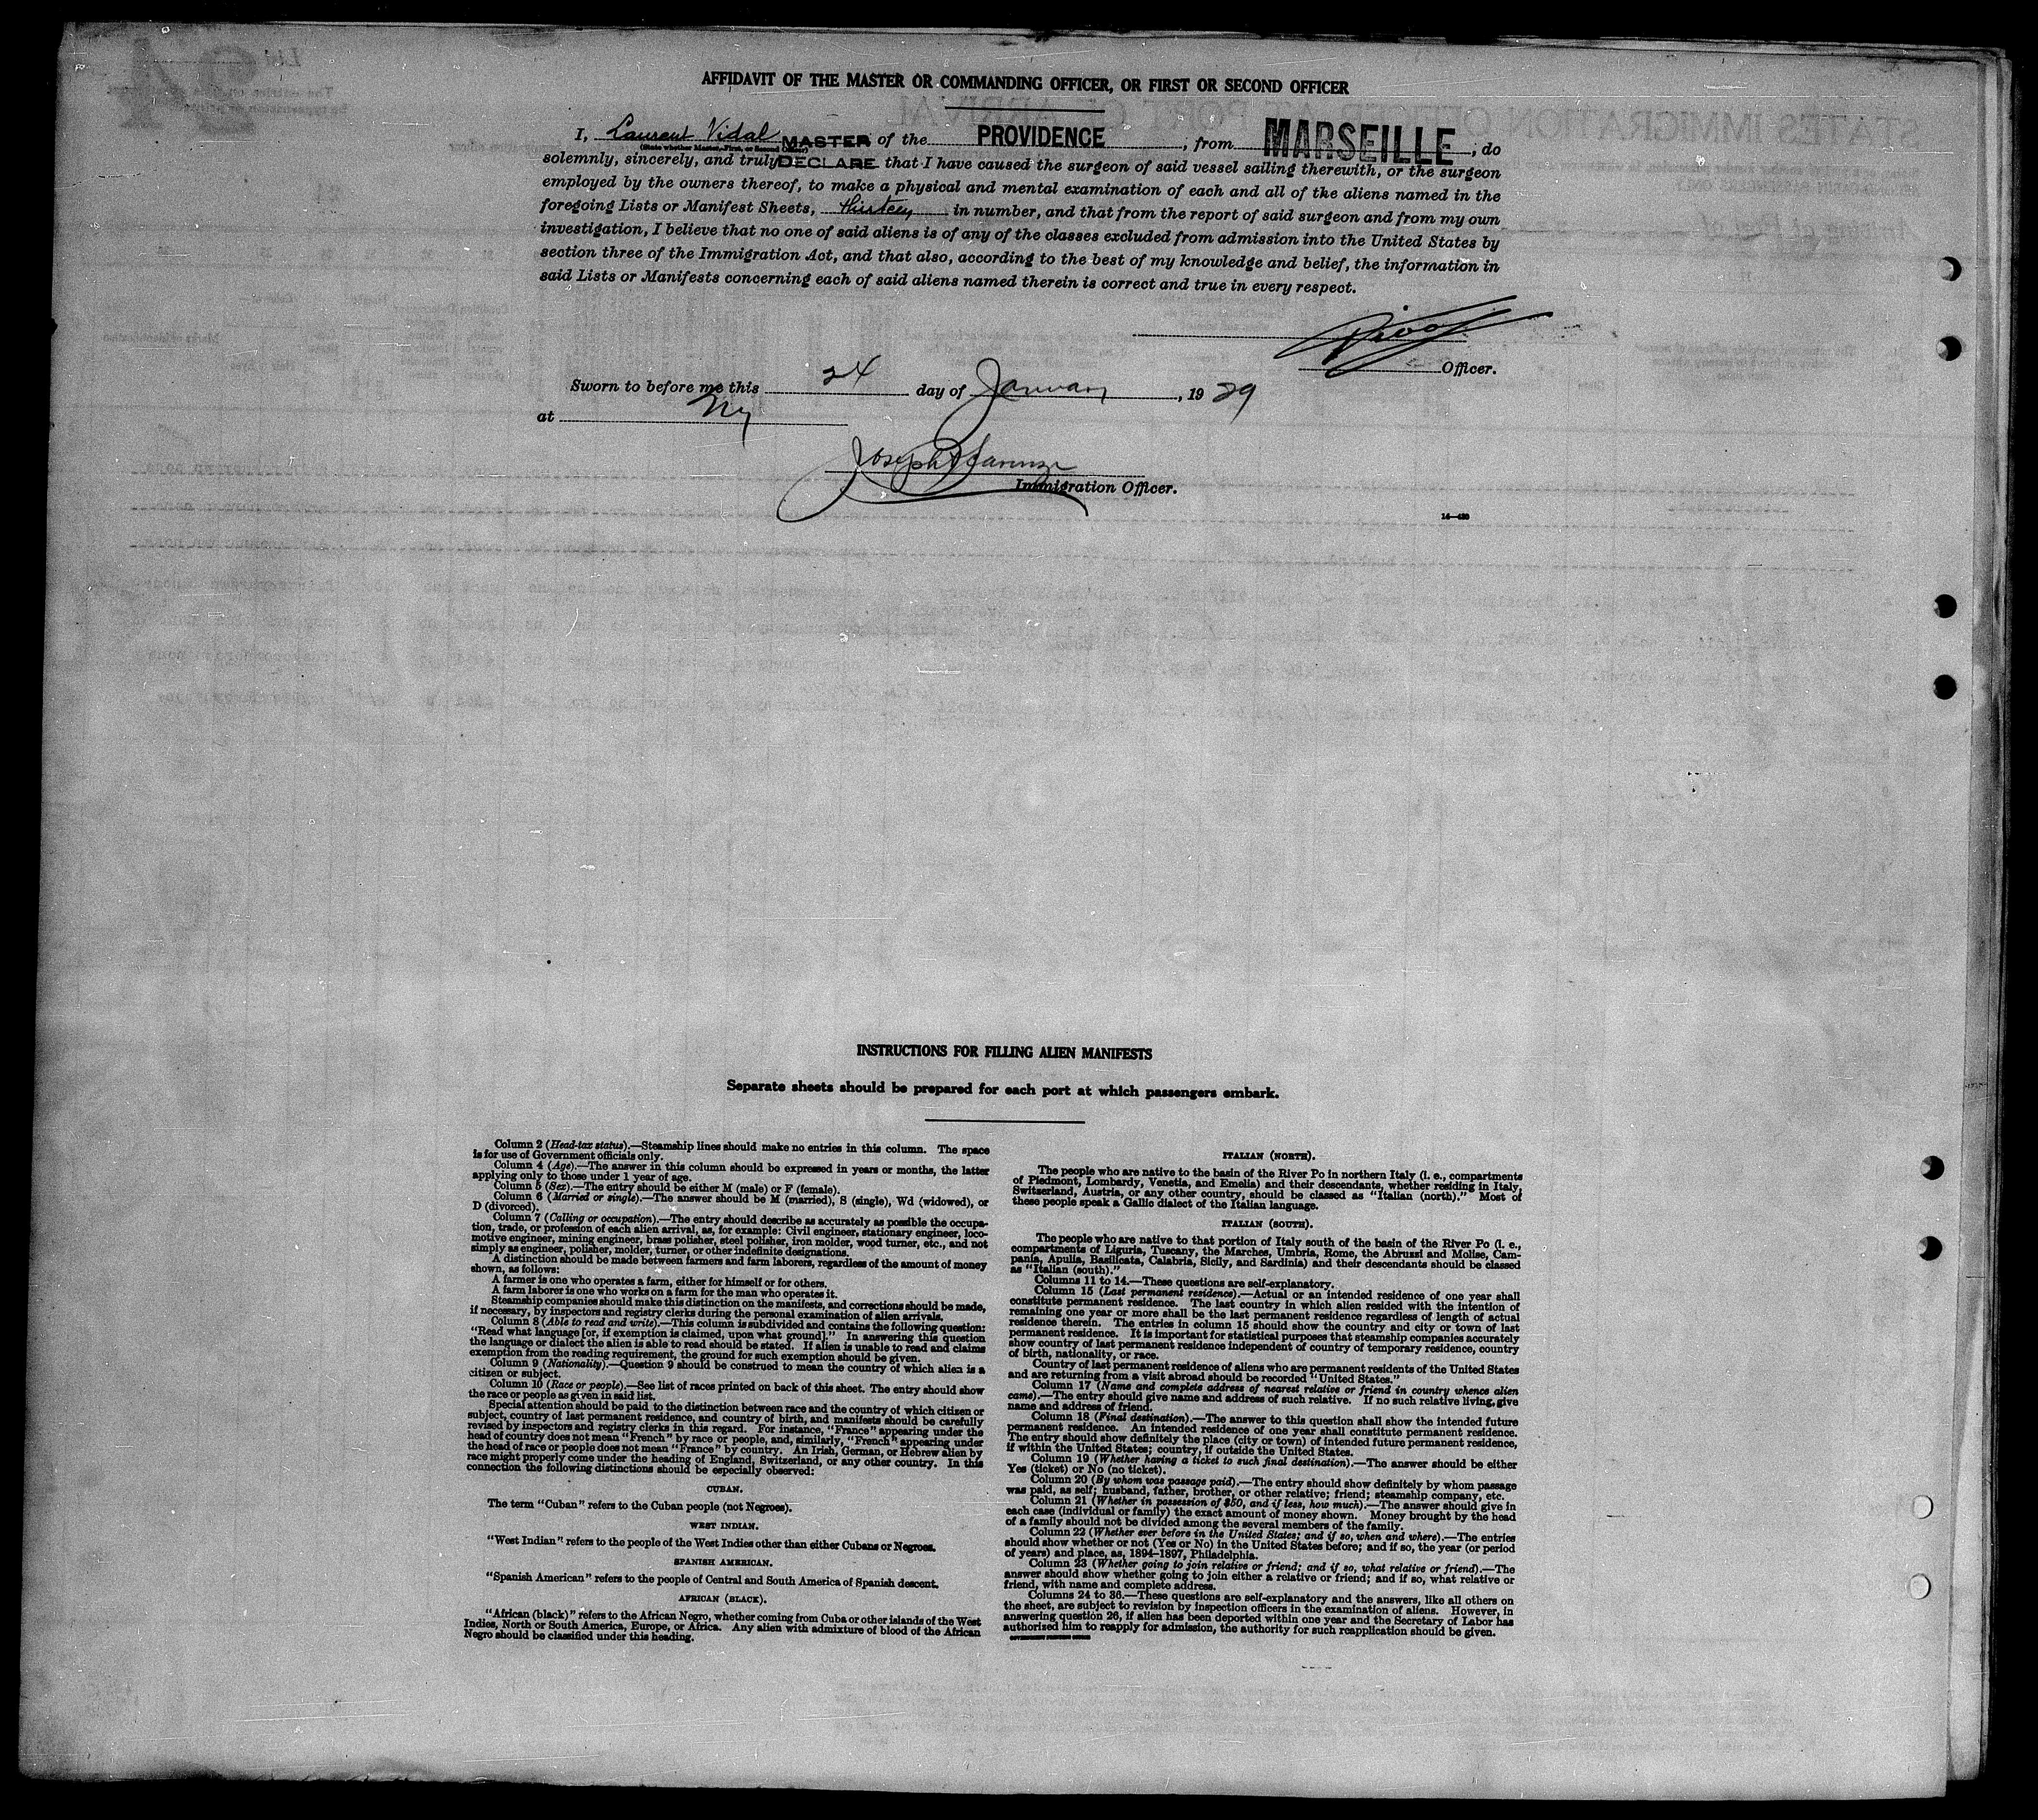 AFFIDAVIT OF THE MASTER OR COMMANDING OFFICER, OR FIRST OR SECOND OFFICER
I, Laurent Vidal MASTER of the PROVIDENCE, from MARSEILLE, do
(State whether Master, First, or Second Officer)
solemnly, sincerely, and truly DECLARE that I have caused the surgeon of said vessel sailing therewith, or the surgeon
employed by the owners thereof, to make a physical and mental examination of each and all of the aliens named in the
foregoing Lists or Manifest Sheets, thirteen in number, and that from the report of said surgeon and from my own
investigation, I believe that no one of said aliens is of any of the classes excluded from admission into the United States by
section three of the Immigration Act, and that also, according to the best of my knowledge and belief, the information in
said Lists or Manifests concerning each of said aliens named therein is correct and true in every respect.
Officer.
Sworn to before me this 24 day of January, 1929
at Ny
Joseph
Immigration Officer.
14—430
INSTRUCTIONS FOR FILLING ALIEN MANIFESTS
Separate sheets should be prepared for each port at which passengers embark.
Column 2 (Head-tax status).—Steamship lines should make no entries in this column. The space
is for use of Government officials only.
Column 4 (Age).—The answer in this column should be expressed in years or months, the latter
applying only to those under 1 year of age.
Column 5 (Sex).—The entry should be either M (male) or F (female).
Column 6 (Married or single).—The answer should be M (married), S (single), Wd (widowed), or
D (divorced).
Column 7 (Calling or occupation).—The entry should describe as accurately as possible the occupa-
tion, trade, or profession of each alien arrival, as, for example: Civil engineer, stationary engineer, loco-
motive engineer, mining engineer, brass polisher, steel polisher, iron molder, wood turner, etc., and not
simply as engineer, polisher, molder, turner, or other indefinite designations.
A distinction should be made between farmers and farm laborers, regardless of the amount of money
shown, as follows:
A farmer is one who operates a farm, either for himself or for others.
A farm laborer is one who works on a farm for the man who operates it.
Steamship companies should make this distinction on the manifests, and corrections should be made,
if necessary, by inspectors and registry clerks during the personal examination of alien arrivals.
Column 8 (Able to read and write).—This column is subdivided and contains the following question:
"Read what language [or, if exemption is claimed, upon what ground]." In answering this question
the language or dialect the alien is able to read should be stated. If alien is unable to read and claims
exemption from the reading requirement, the ground for such exemption should be given.
Column 9 (Nationality).—Question 9 should be construed to mean the country of which alien is a
citizen or subject.
Column 10 (Race or people).—See list of races printed on back of this sheet. The entry should show
the race or people as given in said list.
Special attention should be paid to the distinction between race and the country of which citizen or
subject, country of last permanent residence, and country of birth, and manifests should be carefully
revised by inspectors and registry clerks in this regard. For instance, "France" appearing under the
head of country does not mean "French" by race or people, and, similarly, "French" appearing under
the head of race or people does not mean "France" by country. An Irish, German, or Hebrew alien by
race might properly come under the heading of England, Switzerland, or any other country. In this
connection the following distinctions should be especially observed:
CUBAN.
The term "Cuban" refers to the Cuban people (not Negroes).
WEST INDIAN.
"West Indian" refers to the people of the West Indies other than either Cubans or Negroes.
SPANISH AMERICAN.
"Spanish American" refers to the people of Central and South America of Spanish descent.
AFRICAN (BLACK).
"African (black)" refers to the African Negro, whether coming from Cuba or other islands of the West
Indies, North or South America, Europe, or Africa. Any alien with admixture of blood of the African
Negro should be classified under this heading.
ITALIAN (NORTH).
The people who are native to the basin of the River Po in northern Italy (i. e., compartments
of Piedmont, Lombardy, Venetia, and Emelia) and their descendants, whether residing in Italy,
Switzerland, Austria, or any other country, should be classed as "Italian (north)." Most of
these people speak a Gallic dialect of the Italian language.
ITALIAN (SOUTH).
The people who are native to that portion of Italy south of the basin of the River Po (i. e.,
compartments of Liguria, Tuscany, the Marches, Umbria, Rome, the Abruzzi and Molise, Cam-
pania, Apulia, Basilicata, Calabria, Sicily, and Sardinia) and their descendants should be classed
as "Italian (south)."
Columns 11 to 14.—These questions are self-explanatory.
Column 15 (Last permanent residence).—Actual or an intended residence of one year shall
constitute permanent residence. The last country in which alien resided with the intention of
remaining one year or more shall be the last permanent residence regardless of length of actual
residence therein. The entries in column 15 should show the country and city or town of last
permanent residence. It is important for statistical purposes that steamship companies accurately
show country of last permanent residence independent of country of temporary residence, country
of birth, nationality, or race.
Country of last permanent residence of aliens who are permanent residents of the United States
and are returning from a visit abroad should be recorded "United States."
Column 17 (Name and complete address of nearest relative or friend in country whence alien
came).—The entry should give name and address of such relative. If no such relative living, give
name and address of friend.
Column 18 (Final destination).—The answer to this question shall show the intended future
permanent residence. An intended residence of one year shall constitute permanent residence.
The entry should show definitely the place (city or town) of intended future permanent residence,
if within the United States; country, if outside the United States.
Column 19 (Whether having a ticket to such final destination).—The answer should be either
Yes (ticket) or No (no ticket).
Column 20 (By whom was passage paid).—The entry should show definitely by whom passage
was paid, as self; husband, father, brother, or other relative; friend; steamship company, etc.
Column 21 (Whether in possession of $50, and if less, how much).—The answer should give in
each case (individual or family) the exact amount of money shown. Money brought by the head
of a family should not be divided among the several members of the family.
Column 22 (Whether ever before in the United States; and if so, when and where).—The entries
should show whether or not (Yes or No) in the United States before; and if so, the year (or period
of years) and place, as, 1894–1897, Philadelphia.
Column 23 (Whether going to join relative or friend; and if so, what relative or friend).—The
answer should show whether going to join either a relative or friend; and if so, what relative or
friend, with name and complete address.
Columns 24 to 36.—These questions are self-explanatory and the answers, like all others on
the sheet, are subject to revision by inspection officers in the examination of aliens. However, in
answering question 26, if alien has been deported within one year and the Secretary of Labor has
authorized him to reapply for admission, the authority for such reapplication should be given.